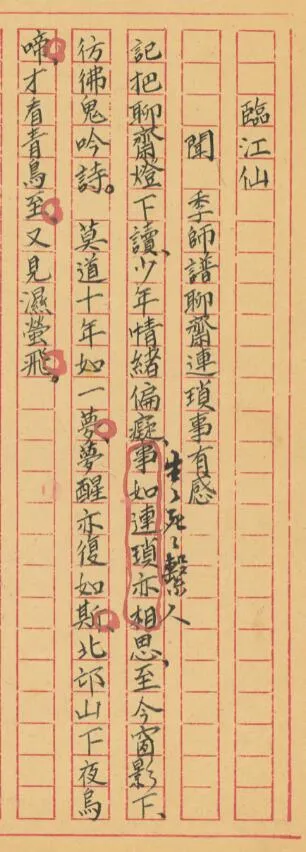 臨江仙
聞　季師譜聊齋連瑣事有感
記把聊齋燈下讀、少年情緒偏癡、事如連瑣亦相思、至今窗影下、
生〻死〻繫人
彷彿鬼吟詩。　莫道十年如一夢、夢醒亦復如斯、北邙山下夜烏
啼、才看青鳥至、又見濕螢飛。